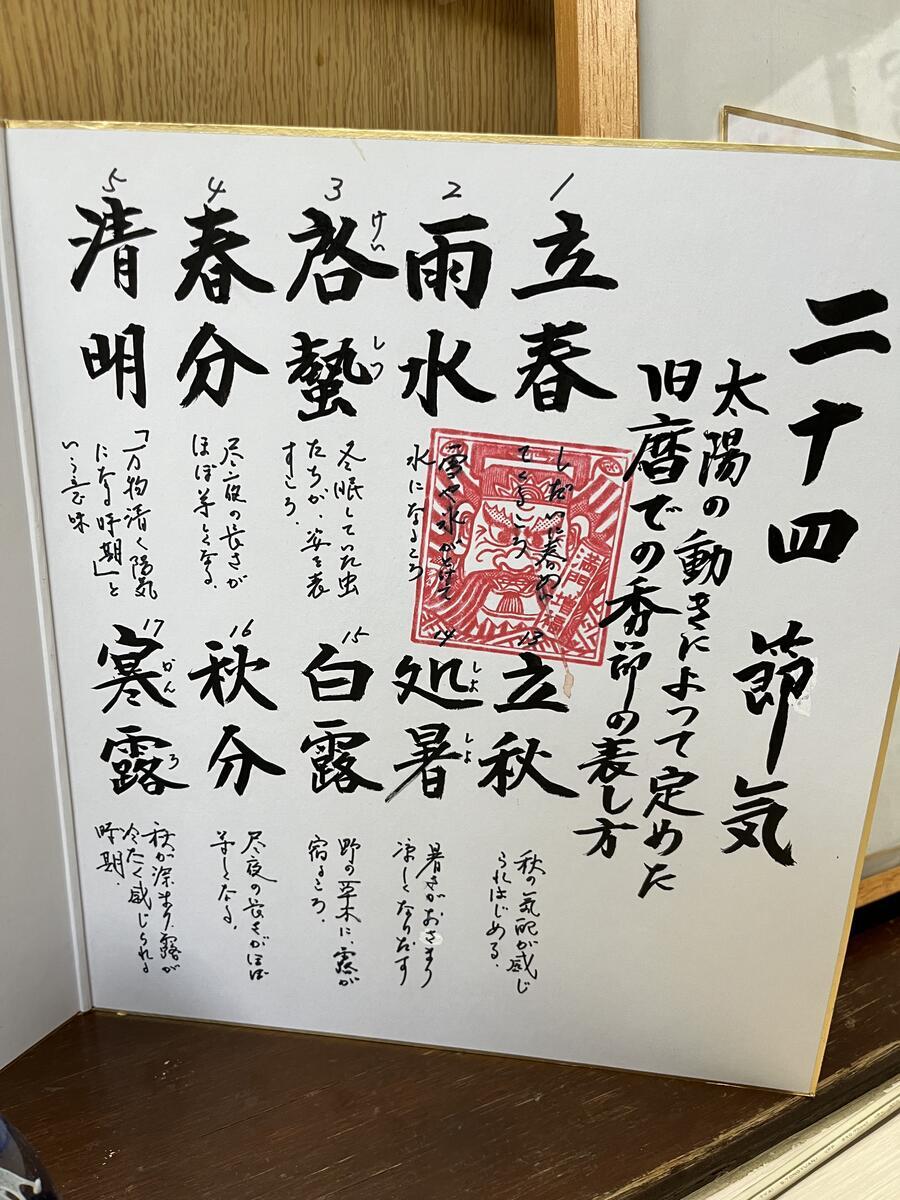 二十四節気
太陽の動きによって定めた
旧暦での季節の表し方
1
立春
しだいに春めい
てくるころ
2
雨水
雪や氷がとけて
水になるころ
3
啓蟄
けい
しつ
冬眠していた虫
たちが、姿を表
すころ。
4
春分
昼夜の長さが
ほぼ等しくなる。
5
清明
「万物清く陽気
になる時期」と
いう意味
満門増福
13
立秋
秋の気配が感じ
られはじめる。
14
処暑
しよ
しよ
暑さがおさまり
涼しくなりだす
15
白露
野の草木に、露が
宿るころ。
16
秋分
昼夜の長さがほぼ
等しくなる。
17
寒露
かん
ろ
秋が深まり露が
冷たく感じられる
時期。